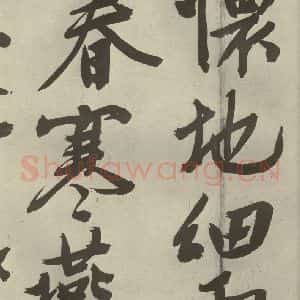 懷地細
春寒燕
Shufawang.CN